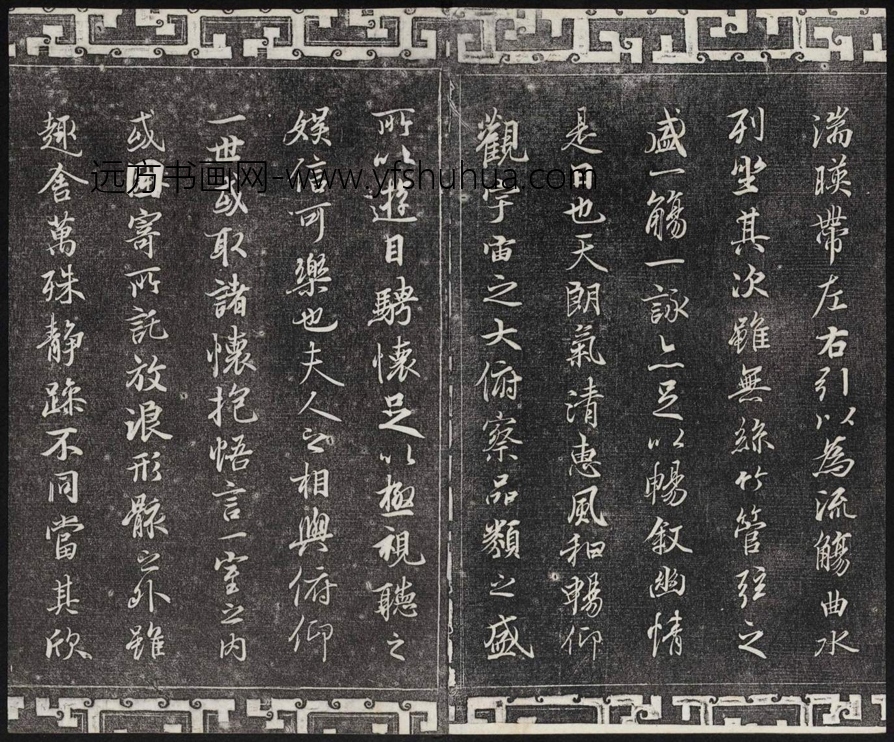 湍暎帶左右引以為流觴曲水
列坐其次雖無絲竹管弦之
盛一觴一詠亦足以暢叙幽情
是日也天朗氣清惠風和暢仰
觀宇宙之大俯察品類之盛
所以遊目騁懷足以極視聽之
娛信可樂也夫人之相與俯仰
一世或取諸懷抱悟言一室之内
或因寄所託放浪形骸之外雖
趣舍萬殊静躁不同當其欣
远方书画网-www.yfshuhua.com